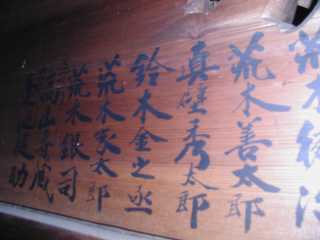 荒木
荒木善太郎
真壁秀太郎
鈴木金之丞
荒木家太郎
荒木銀司
高山
助